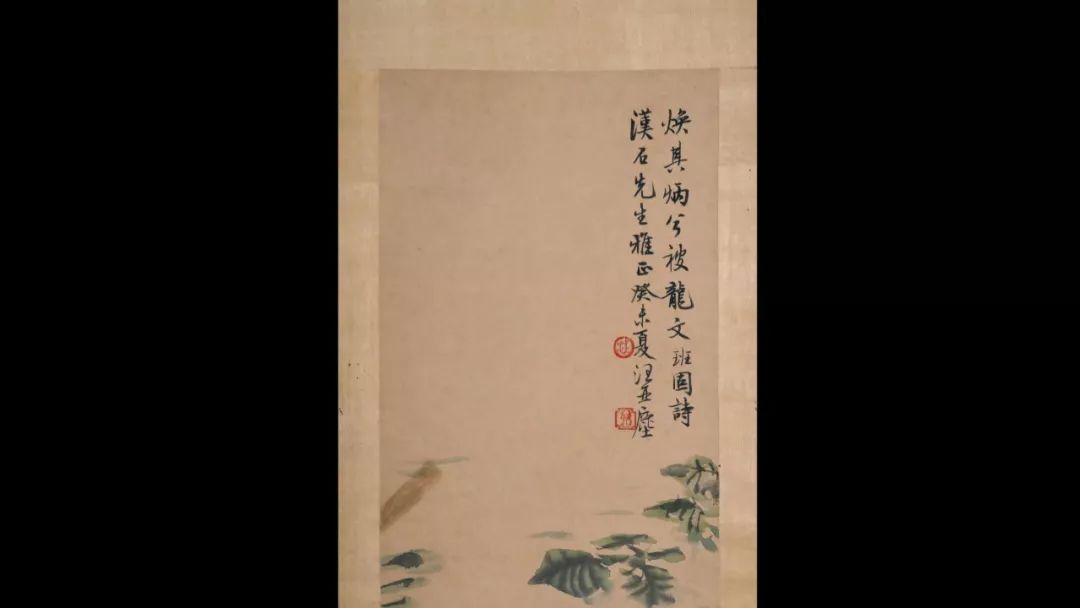 煥其炳兮被龍文班固詩
漢石先生雅正癸未夏汪亞塵